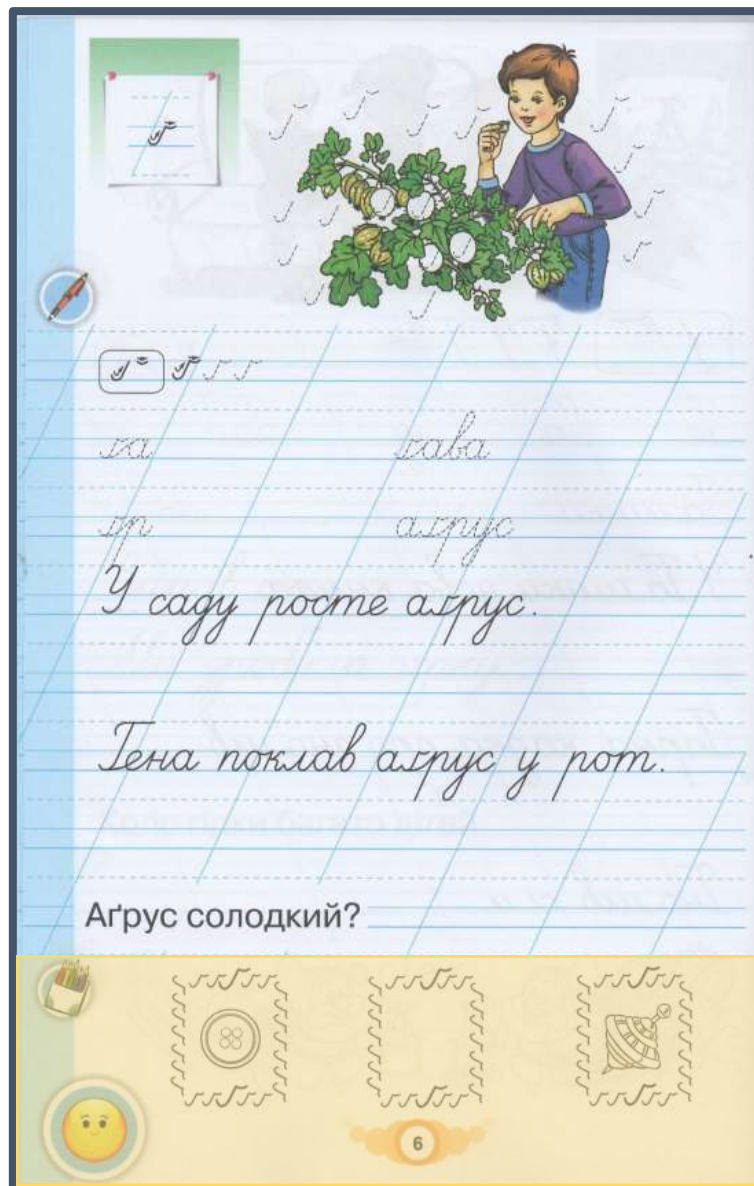 ґ
ґ ґ
ґа ґава
ґр аґрус
У саду росте аґрус.
Гена поклав аґрус у рот.
Аґрус солодкий?
6